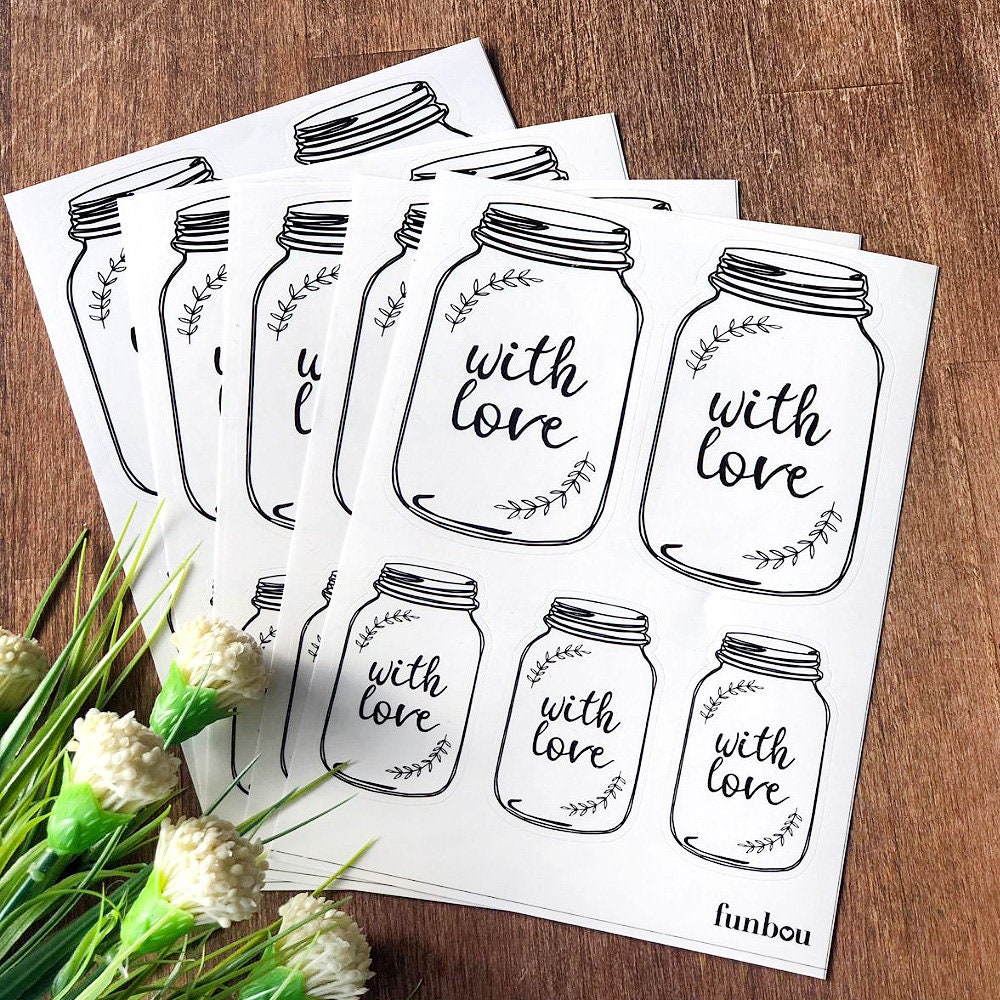 with
love
with
love
with
love
with
love
with
love
funbou